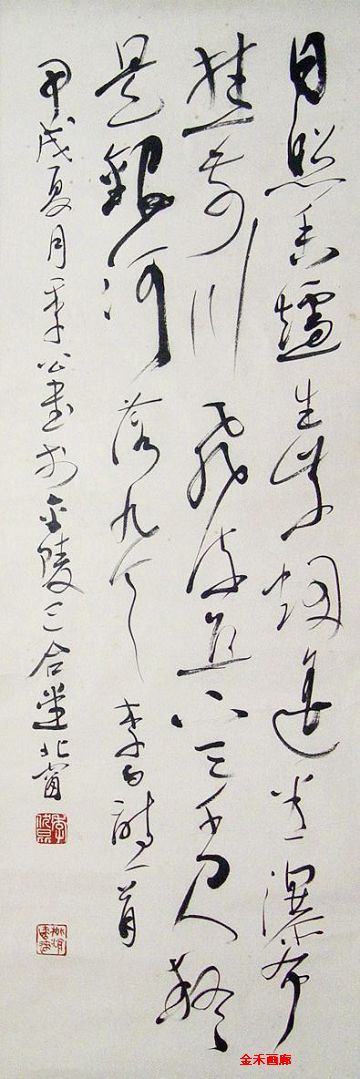 日照香炉生紫烟遥看瀑布
挂前川飞流直下三千尺疑
是银河落九天 李白诗一首
甲戌夏月季公书于金陵三合堂北窗
金禾画廊